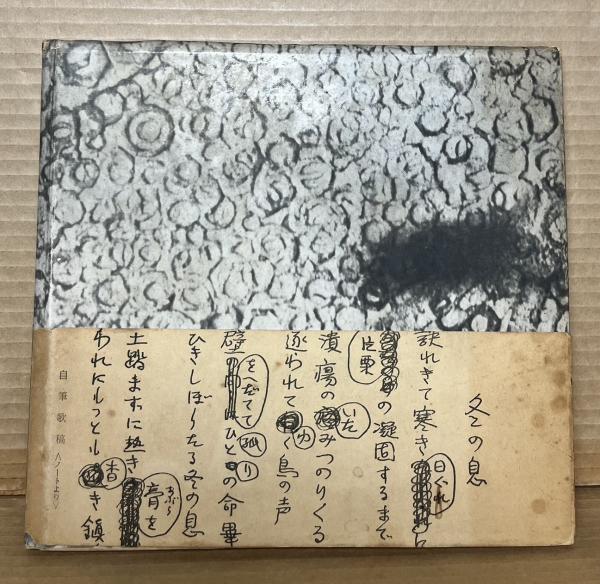 冬の息
訣れきて寒き
日ぐれ
の凝固するまで
片栗
潰瘍の みつのりくる
いた
逐われて く鳥の声
ゆ
壁 ひと の命畢
をへだてて
祇り
ひきしぼりたる冬の息
土踏まずに熱き
膏を
あぶら
われにもつとも き鎮
杳
自筆歌稿〈ノートより〉